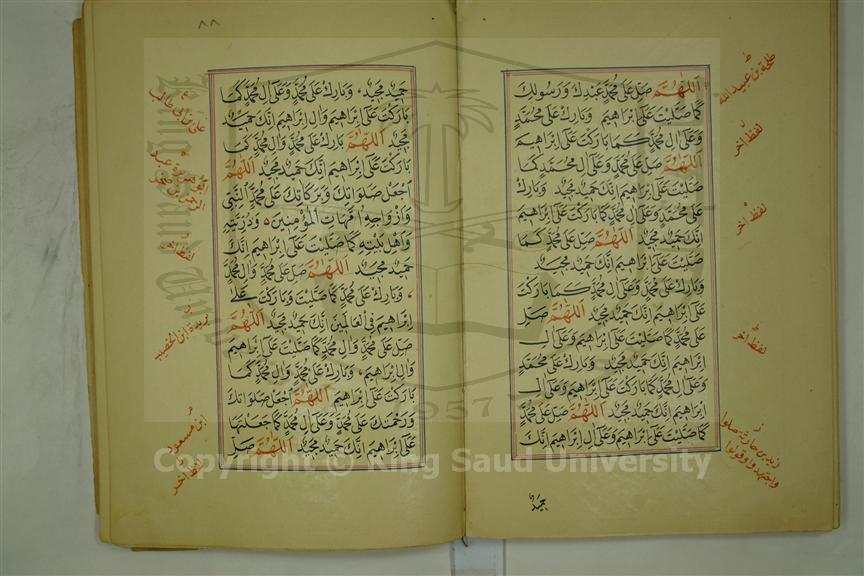 اَللّٰهُمَّ صَلِّ عَلٰى مُحَمَّدٍ عَبْدِكَ وَرَسُولِكَ
كَمَا صَلَّيْتَ عَلٰى اِبْرٰهِيمَ وَبَارِكْ عَلٰى مُحَمَّدٍ
وَعَلٰى اٰلِ مُحَمَّدٍ كَمَا بَارَكْتَ عَلٰى اِبْرٰهِيمَ
اَللّٰهُمَّ صَلِّ عَلٰى مُحَمَّدٍ وَعَلٰى اٰلِ مُحَمَّدٍ كَمَا
صَلَّيْتَ عَلٰى اِبْرٰهِيمَ اِنَّكَ حَمِيدٌ مَجِيدٌ وَبَارِكْ
عَلٰى مُحَمَّدٍ وَعَلٰى اٰلِ مُحَمَّدٍ كَمَا بَارَكْتَ عَلٰى اِبْرٰهِيمَ
اِنَّكَ حَمِيدٌ مَجِيدٌ اَللّٰهُمَّ صَلِّ عَلٰى مُحَمَّدٍ كَمَا
صَلَّيْتَ عَلٰى اِبْرٰهِيمَ اِنَّكَ حَمِيدٌ مَجِيدٌ
وَبَارِكْ عَلٰى مُحَمَّدٍ وَعَلٰى اٰلِ مُحَمَّدٍ كَمَا بَارَكْتَ
عَلٰى اِبْرٰهِيمَ اِنَّكَ حَمِيدٌ مَجِيدٌ اَللّٰهُمَّ صَلِّ
عَلٰى مُحَمَّدٍ كَمَا صَلَّيْتَ عَلٰى اِبْرٰهِيمَ وَعَلٰى اٰلِ
اِبْرٰهِيمَ اِنَّكَ حَمِيدٌ مَجِيدٌ وَبَارِكْ عَلٰى مُحَمَّدٍ
وَعَلٰى اٰلِ مُحَمَّدٍ كَمَا بَارَكْتَ عَلٰى اِبْرٰهِيمَ وَعَلٰى اٰلِ
اِبْرٰهِيمَ اِنَّكَ حَمِيدٌ مَجِيدٌ اَللّٰهُمَّ صَلِّ عَلٰى مُحَمَّدٍ
كَمَا صَلَّيْتَ عَلٰى اِبْرٰهِيمَ وَعَلٰى اٰلِ اِبْرٰهِيمَ اِنَّكَ
حَمِيدٌ
طلحة بن عبيد الله
لفظ آخر
لفظ آخر
لفظ آخر
زيد بن حارثة صلوا
واجتهدوا وقولوا
٨٨
حَمِيدٌ مَجِيدٌ وَبَارِكْ عَلٰى مُحَمَّدٍ وَعَلٰى اٰلِ مُحَمَّدٍ كَمَا
بَارَكْتَ عَلٰى اِبْرٰهِيمَ وَاٰلِ اِبْرٰهِيمَ اِنَّكَ حَمِيدٌ
مَجِيدٌ اَللّٰهُمَّ بَارِكْ عَلٰى مُحَمَّدٍ وَعَلٰى اٰلِ مُحَمَّدٍ كَمَا
بَارَكْتَ عَلٰى اِبْرٰهِيمَ اِنَّكَ حَمِيدٌ مَجِيدٌ اَللّٰهُمَّ
اجْعَلْ صَلَوَاتِكَ وَبَرَكَاتِكَ عَلٰى مُحَمَّدٍ النَّبِيِّ
وَاَزْوَاجِهِ اُمَّهَاتِ الْمُؤْمِنِينَ وَذُرِّيَّتِهِ
وَاَهْلِ بَيْتِهِ كَمَا صَلَّيْتَ عَلٰى اِبْرٰهِيمَ اِنَّكَ
حَمِيدٌ مَجِيدٌ اَللّٰهُمَّ صَلِّ عَلٰى مُحَمَّدٍ وَاٰلِ مُحَمَّدٍ
وَبَارِكْ عَلٰى مُحَمَّدٍ كَمَا صَلَّيْتَ وَبَارَكْتَ عَلٰى
اِبْرٰهِيمَ فِي الْعَالَمِينَ اِنَّكَ حَمِيدٌ مَجِيدٌ اَللّٰهُمَّ
صَلِّ عَلٰى مُحَمَّدٍ وَاٰلِ مُحَمَّدٍ كَمَا صَلَّيْتَ عَلٰى اِبْرٰهِيمَ
وَاٰلِ اِبْرٰهِيمَ وَبَارِكْ عَلٰى مُحَمَّدٍ وَاٰلِ مُحَمَّدٍ كَمَا
بَارَكْتَ عَلٰى اِبْرٰهِيمَ اَللّٰهُمَّ اجْعَلْ صَلَوَاتِكَ
وَرَحْمَتَكَ عَلٰى مُحَمَّدٍ وَعَلٰى اٰلِ مُحَمَّدٍ كَمَا جَعَلْتَهَا
عَلٰى اِبْرٰهِيمَ اِنَّكَ حَمِيدٌ مَجِيدٌ اَللّٰهُمَّ صَلِّ
علي بن أبي طالب
لفظ آخر
بريدة ابن الخصيب
ابن مسعود
لفظ آخر
Copyright © King Saud University
1957